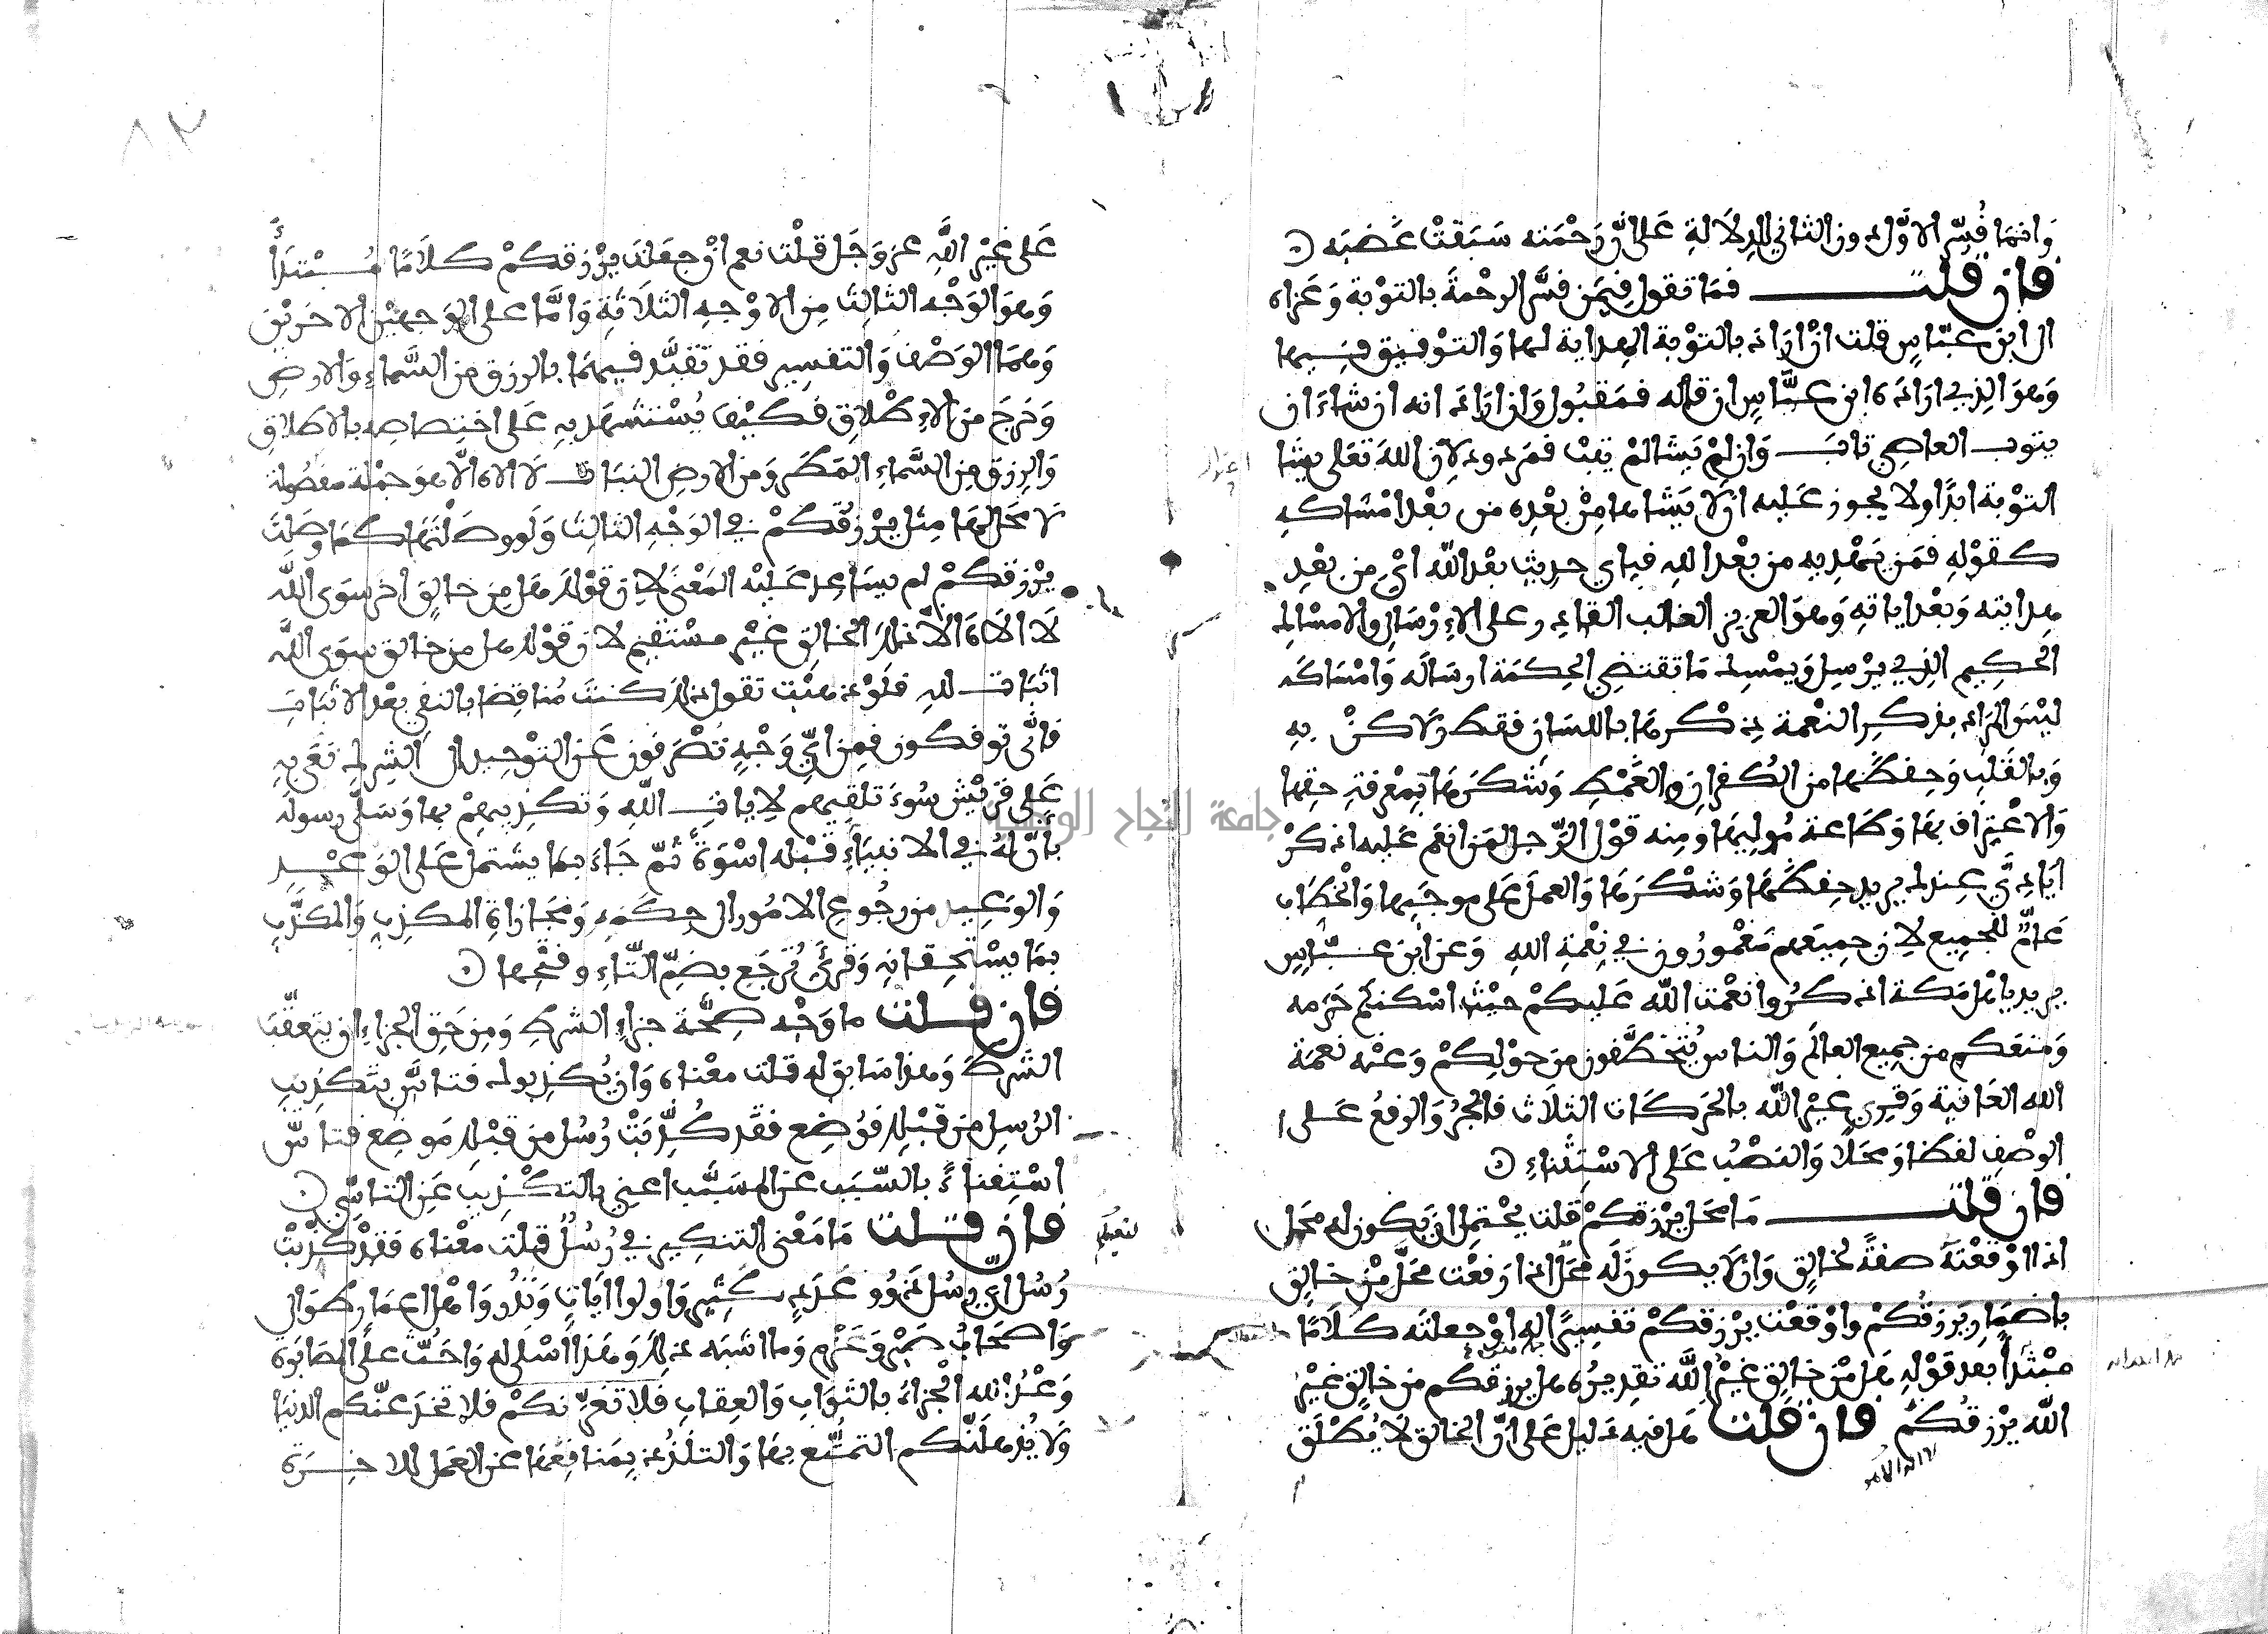 وَانما فُسِّر الاوَّل دون الثاني للدِلَالَةِ عَلى انّ رَحْمَته سَبَقَتْ غَضَبَه
فان قلت فمَا تقول فيمَن فسَّر الرحْمَةَ بالتوْبة وَعَزاه
الى ابن عبّاسٍ قلت انْ ارَاد بالتوْبة الهِداية لهَا وَالتوْفيق فيهَا
وَهوَ الذِي ارَادَه ابن عبَّاسٍ ان قاله فمَقبُول وَان ارَادَ انه ان شاءَ ان
يتوب العاصِي تابَ وَان لمْ يَشَا لمْ يتبْ فمَردود لِانّ اللهَ تعَلى يشا
التوْبة ابدًا ولا يجوز عَليه ان لا يَشَاهَا مِنْ بعْدِه من بعْد امْسَاكهِ
كقوْلهِ فمَن يَهْدِيه من بعْد اللهِ فباي حدِيث بعْد اللّه ايْ مِن بعْدِ
هِدايته وَبعْد اياتهِ وَهوَ العزيز الغالب القادِر على الاِرْسَال والامْسَاك
الحكِيم الذِي يرْسِل وَيمْسِك مَا تقتضِي الحِكمَة ارسَاله وَامْسَاكه
ليْسَ المرَاد بذكرِ النعْمة ذِكْرهَا باللسَان فقط وَلَاكنْ بِهِ
وَبالقلب وَحِفظهَا من الكُفرانِ وَالغَمْطِ وَشكرهَا بمِعْرفةِ حقِهَا
وَالاعْترَاف بهَا وَطاعة مُولِيهَا ومنه قوْل الرَّجل لمَن انعَم عَليه اذكرْ
ايَادِيَّ عِندك يريد حِفظهَا وَشكْرَهَا وَالعملَ عَلى موجَبِها وَالخطَاب
عَامٌّ للجمِيع لِان جمِيعَهم مَغْمورُون في نِعْمَةِ اللهِ وَعن ابن عبّاسٍ
يريد يا اهْل مَكة اذكرُوا نعْمت اللّه عَليكمْ حيْث اسْكنكم حَرَمه
وَمنعَكم من جمِيع العالَم وَالناس يُتخَطَّفون من حوْلِكمْ وَعنْه نعمَة
الله العَافيةِ وَقرِئ غيْر اللّه بالحَركات الثلَاث فالجرُّ وَالرفعُ عَلى
الوصْفِ لفظا وَمحَلا وَالنصْبُ عَلى الاسْتِثناءِ
فان قلت مَا محَل يرْزقكمْ قلت يحْتمِل انْ يَكون له محَل
اذا اوْقعْته صفةً لخالِق وَان لا يكون له محَل اذا رَفعْت محَلّ منْ خالِق
باضمَارِ يَرزقكمْ واوْقعْت يرْزقكمْ تفسِيرًا له اوْ جعلته كلَامًا
مبْتدأً بعد قوْلهِ هَل منْ خالِق غيْرُ اللَّه تقدِيرُه هل يرزقكم من خالِق غيْرُ
اللّه يرْزقُكُمْ فان قلت هَل فيه دَليل عَلى انَّ الخالق لَا يُطْلَق
عَلى غيْرِ اللَّهِ عز وَجَل قلْت نعم انْ جعَلتَ يرْزقكمْ كلَامًا مُبْتدَأً
وَهوَ الوَجْه الثالِث مِن الاوْجهِ الثلَاثةِ وَامَّا على الوَجهيْن الاخَريْن
وَهمَا الوَصْف وَالتفسِير فقد تقيَّد فيهمَا بالرزق من السَّماءِ وَالارض
وَخرَجَ من الاِطْلَاق فكيْف يُسْتشهَد بهِ عَلى اختِصاصِه بالاطلاق
وَالرزق مِن السَّماءِ المَطر وَمن الارض النبَات لا الاه الّا هوَ جمْلة مفصُولة
لا محَل لهَا مِثل يرْزقُكمْ في الوَجْه الثالث وَلَو وصَلتهَا كمَا وصَلْتَ
يرْزقكمْ لم يسَاعِد عَليْه المَعْنى لِان قوْلك هَل مِن خالِق اخر سوَى اللّه
لَا الَاه الَّا ذلك الخالِق غيْر مسْتقِيم لان قوْلك هل من خالِق سوَى اللَّه
اثبَات للهِ فلوْ ذهبْت تقول ذلك كنتَ مُناقِضا بالنفي بعْد الاثبَات
فانَّى توفكون فمِن ايِّ وَجْهٍ تُصْرَفون عَن التوْحِيد الى الشِرك نعَى بهِ
عَلى قريْش سُوءَ تلقيهم لِايات اللّهِ وَتكذِيبهِمْ بها وَسَلّى رسوله
بأنّ لهُ في الانبيَاءِ قبْله اسْوَةً ثُمّ جَاءَ بمَا يشتمل عَلى الوَعْدِ
وَالوَعِيد من رجُوع الامُور الى حِكمَه وَمجَازاةِ المكذِبِ وَالمكذَّبِ
بمَا يسْتحِقانِهِ وَقرئَ تُرْجَع بضمِّ التّاءِ وفتْحِهَا
فان قلت ما وَجْه صِحَّة جزاءِ الشرطِ وَمِن حَقِ الجزاءِ ان يتعقّبَ
الشرطَ وَهذا سَابق له قلت معْناه وَان يُكذِبوك فتاسَّ بتكذِيبِ
الرُسل من قبْلِك فوُضِع فقد كُذِّبَتْ رُسُل من قبْلِك مَوضِع فتاسَّ
اسْتِغناءً بالسّبَب عَن المسَبّب اعنِي بالتكذِيب عَن التاسِّي
فان قلت مَا مَعْنى التنكِير في رُسُلٌ قلت معْناه فقدْ كذِّبَتْ
رُسُل ايُّ رسُل ذوُو عَدَدٍ كثِير وَاولوا ايَاتٍ وَنُذُر وَاهْل اعمَار طوَال
وَاصحَابُ صَبْر وَعَزْم وَما اشبه ذلك وَهذا اسْلَى له وَاحَثّ عَلى المصَابَرة
وَعْدُ الله الجزاءُ بالثوَاب وَالعِقاب فلا تغرَّنكمْ فلا تخدَعَنّكم الدنيَا
وَلا يُذهلَنّكم التمتّع بهَا وَالتلذُذ بمَنافعهَا عن العَمَل للاخِرَة
جامعة النجاح الوطنية